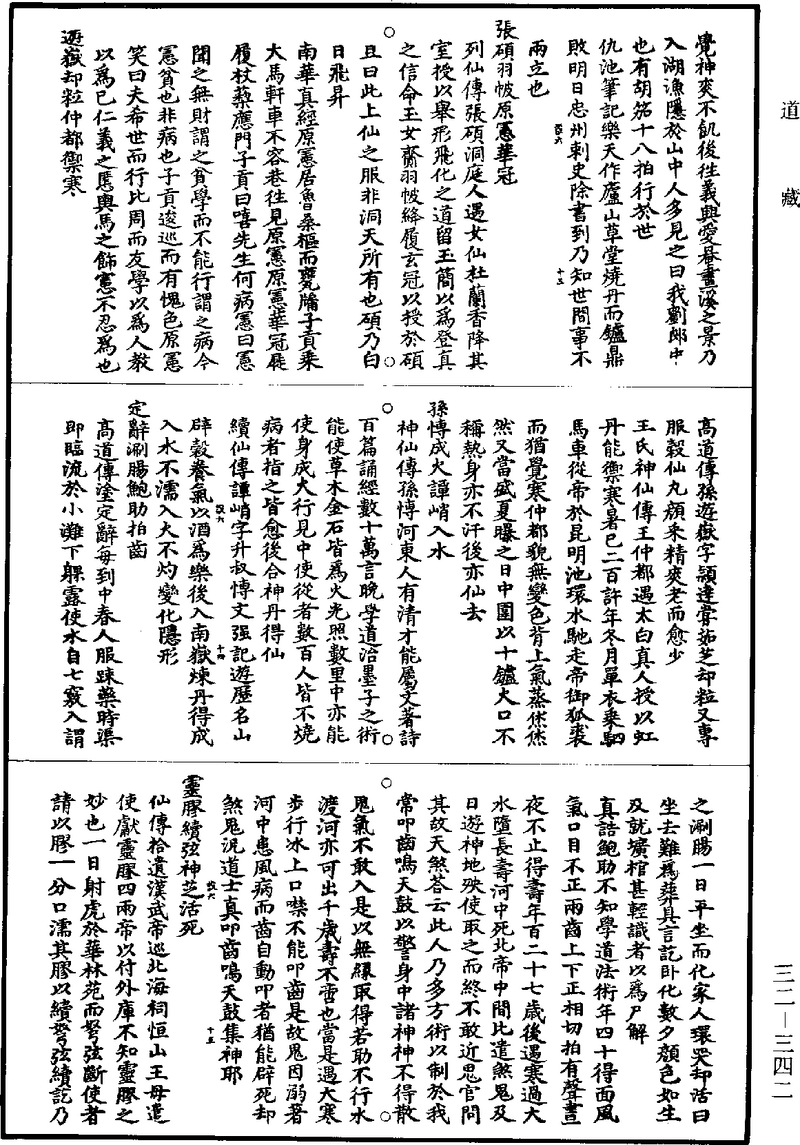 道藏
覺神爽不飢後往義興愛暮畫溪之景乃
入湖漁隱於山中人多見之曰我劉郎中
也有胡笳十八拍行於世
仇池筆記樂天作廬山草堂燒丹而鑪鼎
敗明日忠州刺史除書到乃知世間事不
兩立也
張碩羽帔原憲華冠
列仙傳張碩洞庭人遇女仙杜蘭香降其
室授以舉形飛化之道留玉簡以為登真
之信命玉女齎羽帔絳履玄冠以授於碩
且曰此上仙之服非洞天所有也碩乃白
日飛昇
南華真經原憲居魯桑樞而甕牖子貢乘
大馬軒車不容巷往見原憲原憲華冠屣
履杖藜應門子貢曰嘻先生何病憲曰憲
聞之無財謂之貧學而不能行謂之病今
憲貧也非病也子貢逡巡而有愧色原憲
笑曰夫希世而行比周而友學以為人教
以為己仁義之慝輿馬之飾憲不忍為也
遊嶽却粒仲都禦寒
高道傳孫遊嶽字穎達嘗茹芝却粒又專
服穀仙丸顏釆精爽老而愈少
王氏神仙傳王仲都遇太白真人授以虹
丹能禦寒暑已二百許年冬月單衣乘駟
馬車從帝於昆明池環水馳走帝御狐裘
而猶覺寒仲都貌無變色背上氣蒸烋烋
然又當盛夏曝之日中圍以十鑪火口不
稱熱身亦不汗後亦仙去
孫博成火譚峭入水
神仙傳孫博河東人有清才能屬文著詩
百篇誦經數十萬言晚學道治墨子之術
能使草木金石皆為火光照數里中亦能
使身成火行見中使從者數百人皆不燒
病者指之皆愈後合神丹得仙
續仙傳譚峭字升叔博文强記遊歷名山
辟穀養氣以酒為樂後入南嶽煉丹得成
入水不濡入火不灼變化隱形
定辭涮腸鮑助拍齒
高道傳塗定辭每到中春人服踈藥時渠
即臨流於小灘下躶露使水自七竅入謂
之涮腸一日平坐而化家人環哭却活曰
坐去難為葬具言訖卧化數夕顏色如生
及就壙棺甚輕識者以為尸解
真誥鮑助不知學道法術年四十得面風
氣口目不正兩齒上下正相切拍有聲晝
夜不止得壽年百二十七歲後遇寒過大
水墮長壽河中死北帝中間比遣煞鬼及
日遊神地殃使取之而終不敢近鬼官問
其故天煞荅云此人乃多方術以制於我
常叩齒鳴天鼓以警身中諸神神不得散
鬼氣不敢入是以無緣取得若助不行水
渡河亦可出千歲壽不啻也當是遇大寒
步行冰上口噤不能叩齒是故鬼因溺著
河中患風病而齒自動叩者猶能辟死却
煞鬼況道士真叩齒鳴天鼓集神耶
靈膠續弦神芝活死
仙傳拾遺漢武帝巡北海祠恒山王母遣
使獻靈膠四兩帝以付外庫不知靈膠之
妙也一日射虎於華林苑而弩弦斷使者
請以膠一分口濡其膠以續弩弦續訖乃
三二—三四二